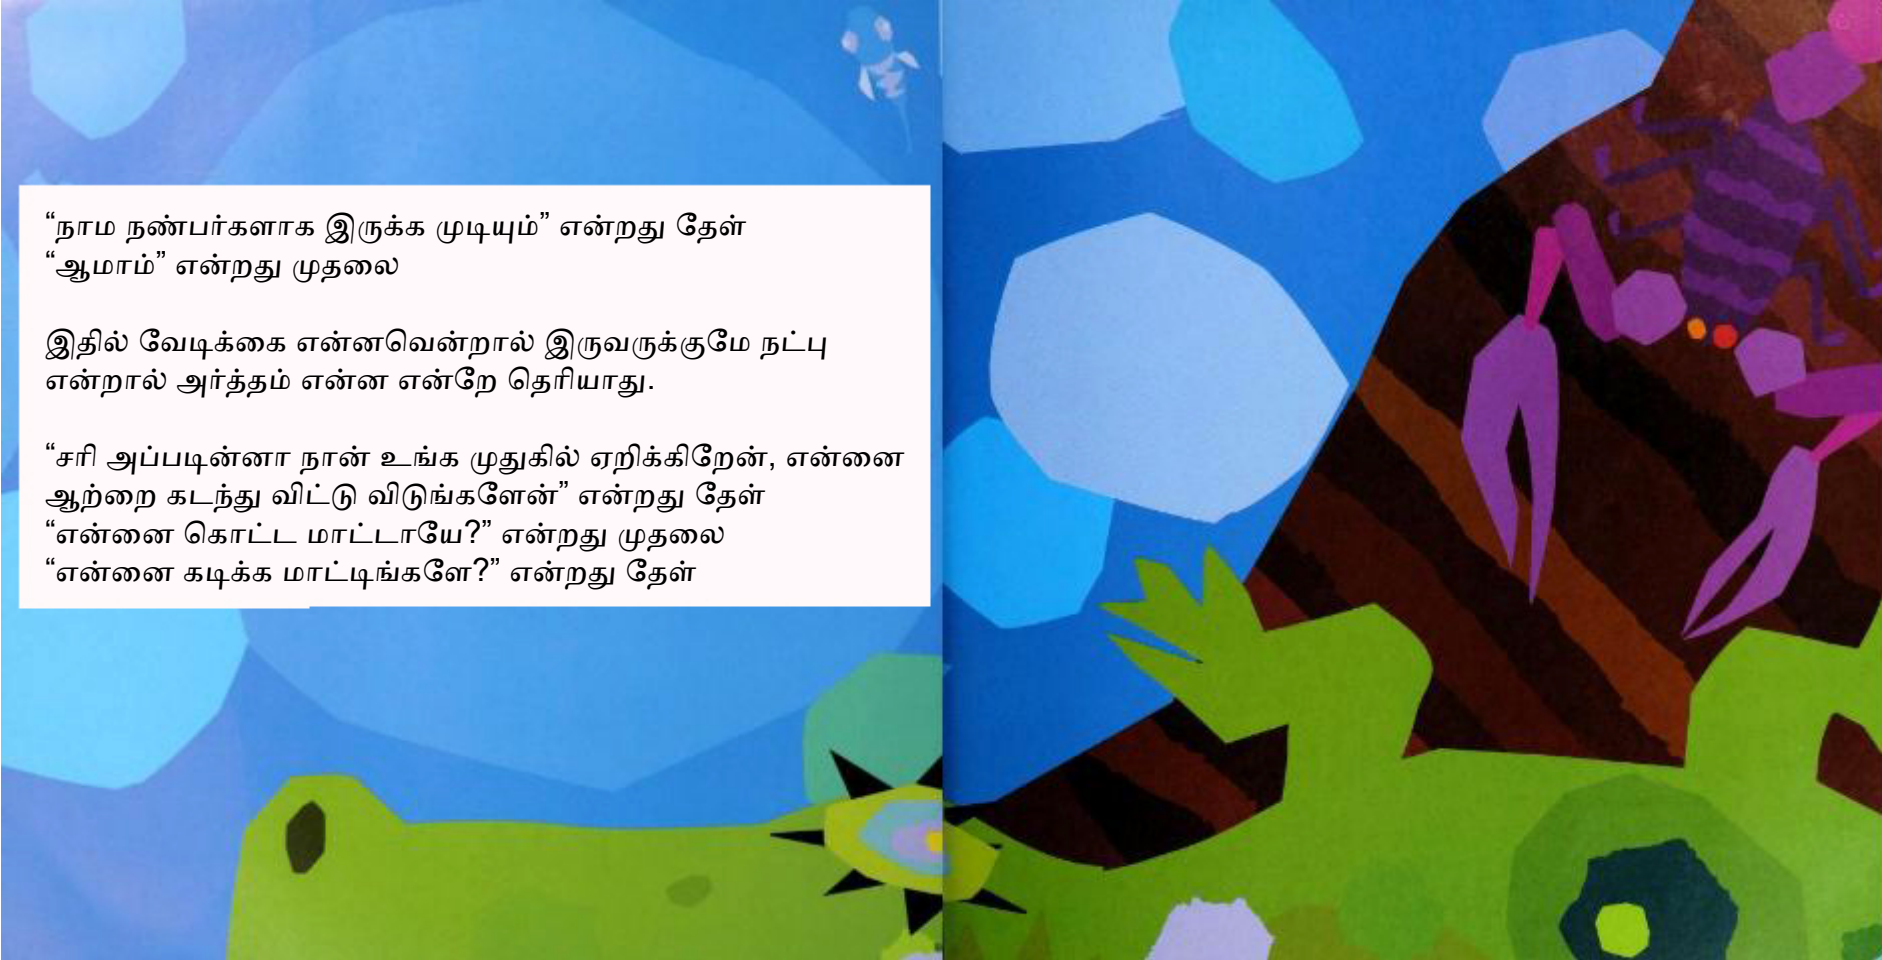 “நாம நண்பர்களாக இருக்க முடியும்” என்றது தேள்
“ஆமாம்” என்றது முதலை
இதில் வேடிக்கை என்னவென்றால் இருவருக்குமே நட்பு
என்றால் அர்த்தம் என்ன என்றே தெரியாது.
“சரி அப்படின்னா நான் உங்க முதுகில் ஏறிக்கிறேன், என்னை
ஆற்றை கடந்து விட்டு விடுங்களேன்” என்றது தேள்
“என்னை கொட்ட மாட்டாயே?” என்றது முதலை
“என்னை கடிக்க மாட்டிங்களே?” என்றது தேள்